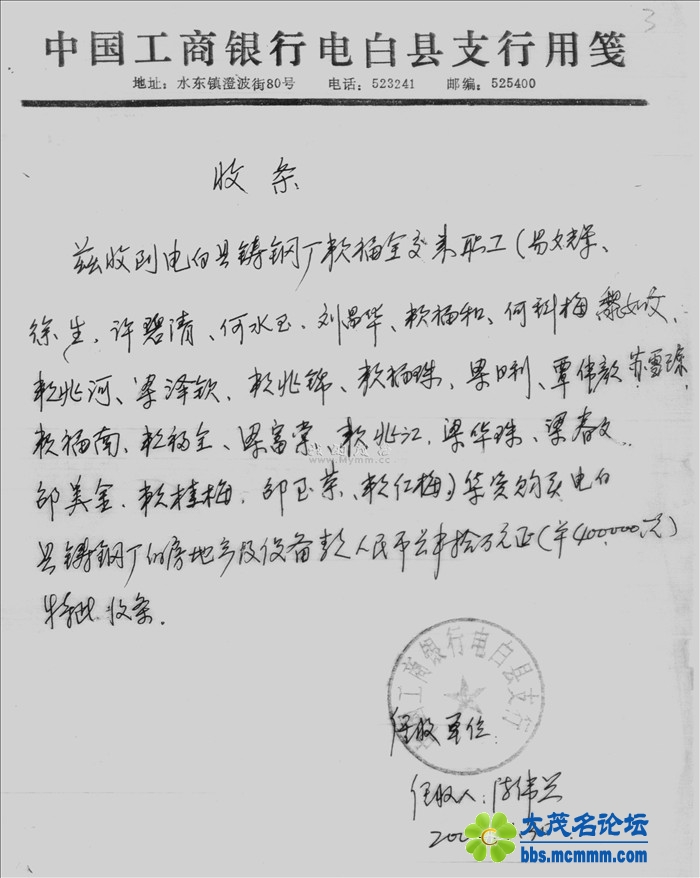 3
中国工商银行电白县支行用笺
地址：水东镇澄波街80号 电话：523241 邮编：525400
收条
兹收到电白县铸钢厂软福全交来职工（易文荣、
徐生、许碧清、何水玉、刘昌华、软福和、何科梅 黎如文、
软兆河、梁泽钦、软兆锦、软福珠、梁日利、覃伟毅 苏雪琼
软福南、软福全、梁富荣、软兆江、梁华珠、梁春文
邵美金、软桂梅、邵玉荣、软仁梅）集资购买电白
县铸钢厂的房地产及设备款人民币 拾万元正（￥400,000元）
特此收条。
www.Mymm.cc
中国工商银行电白县支行
经收单位
经收人：陈伟兰
大茂名论坛
bbs.mcmmm.com